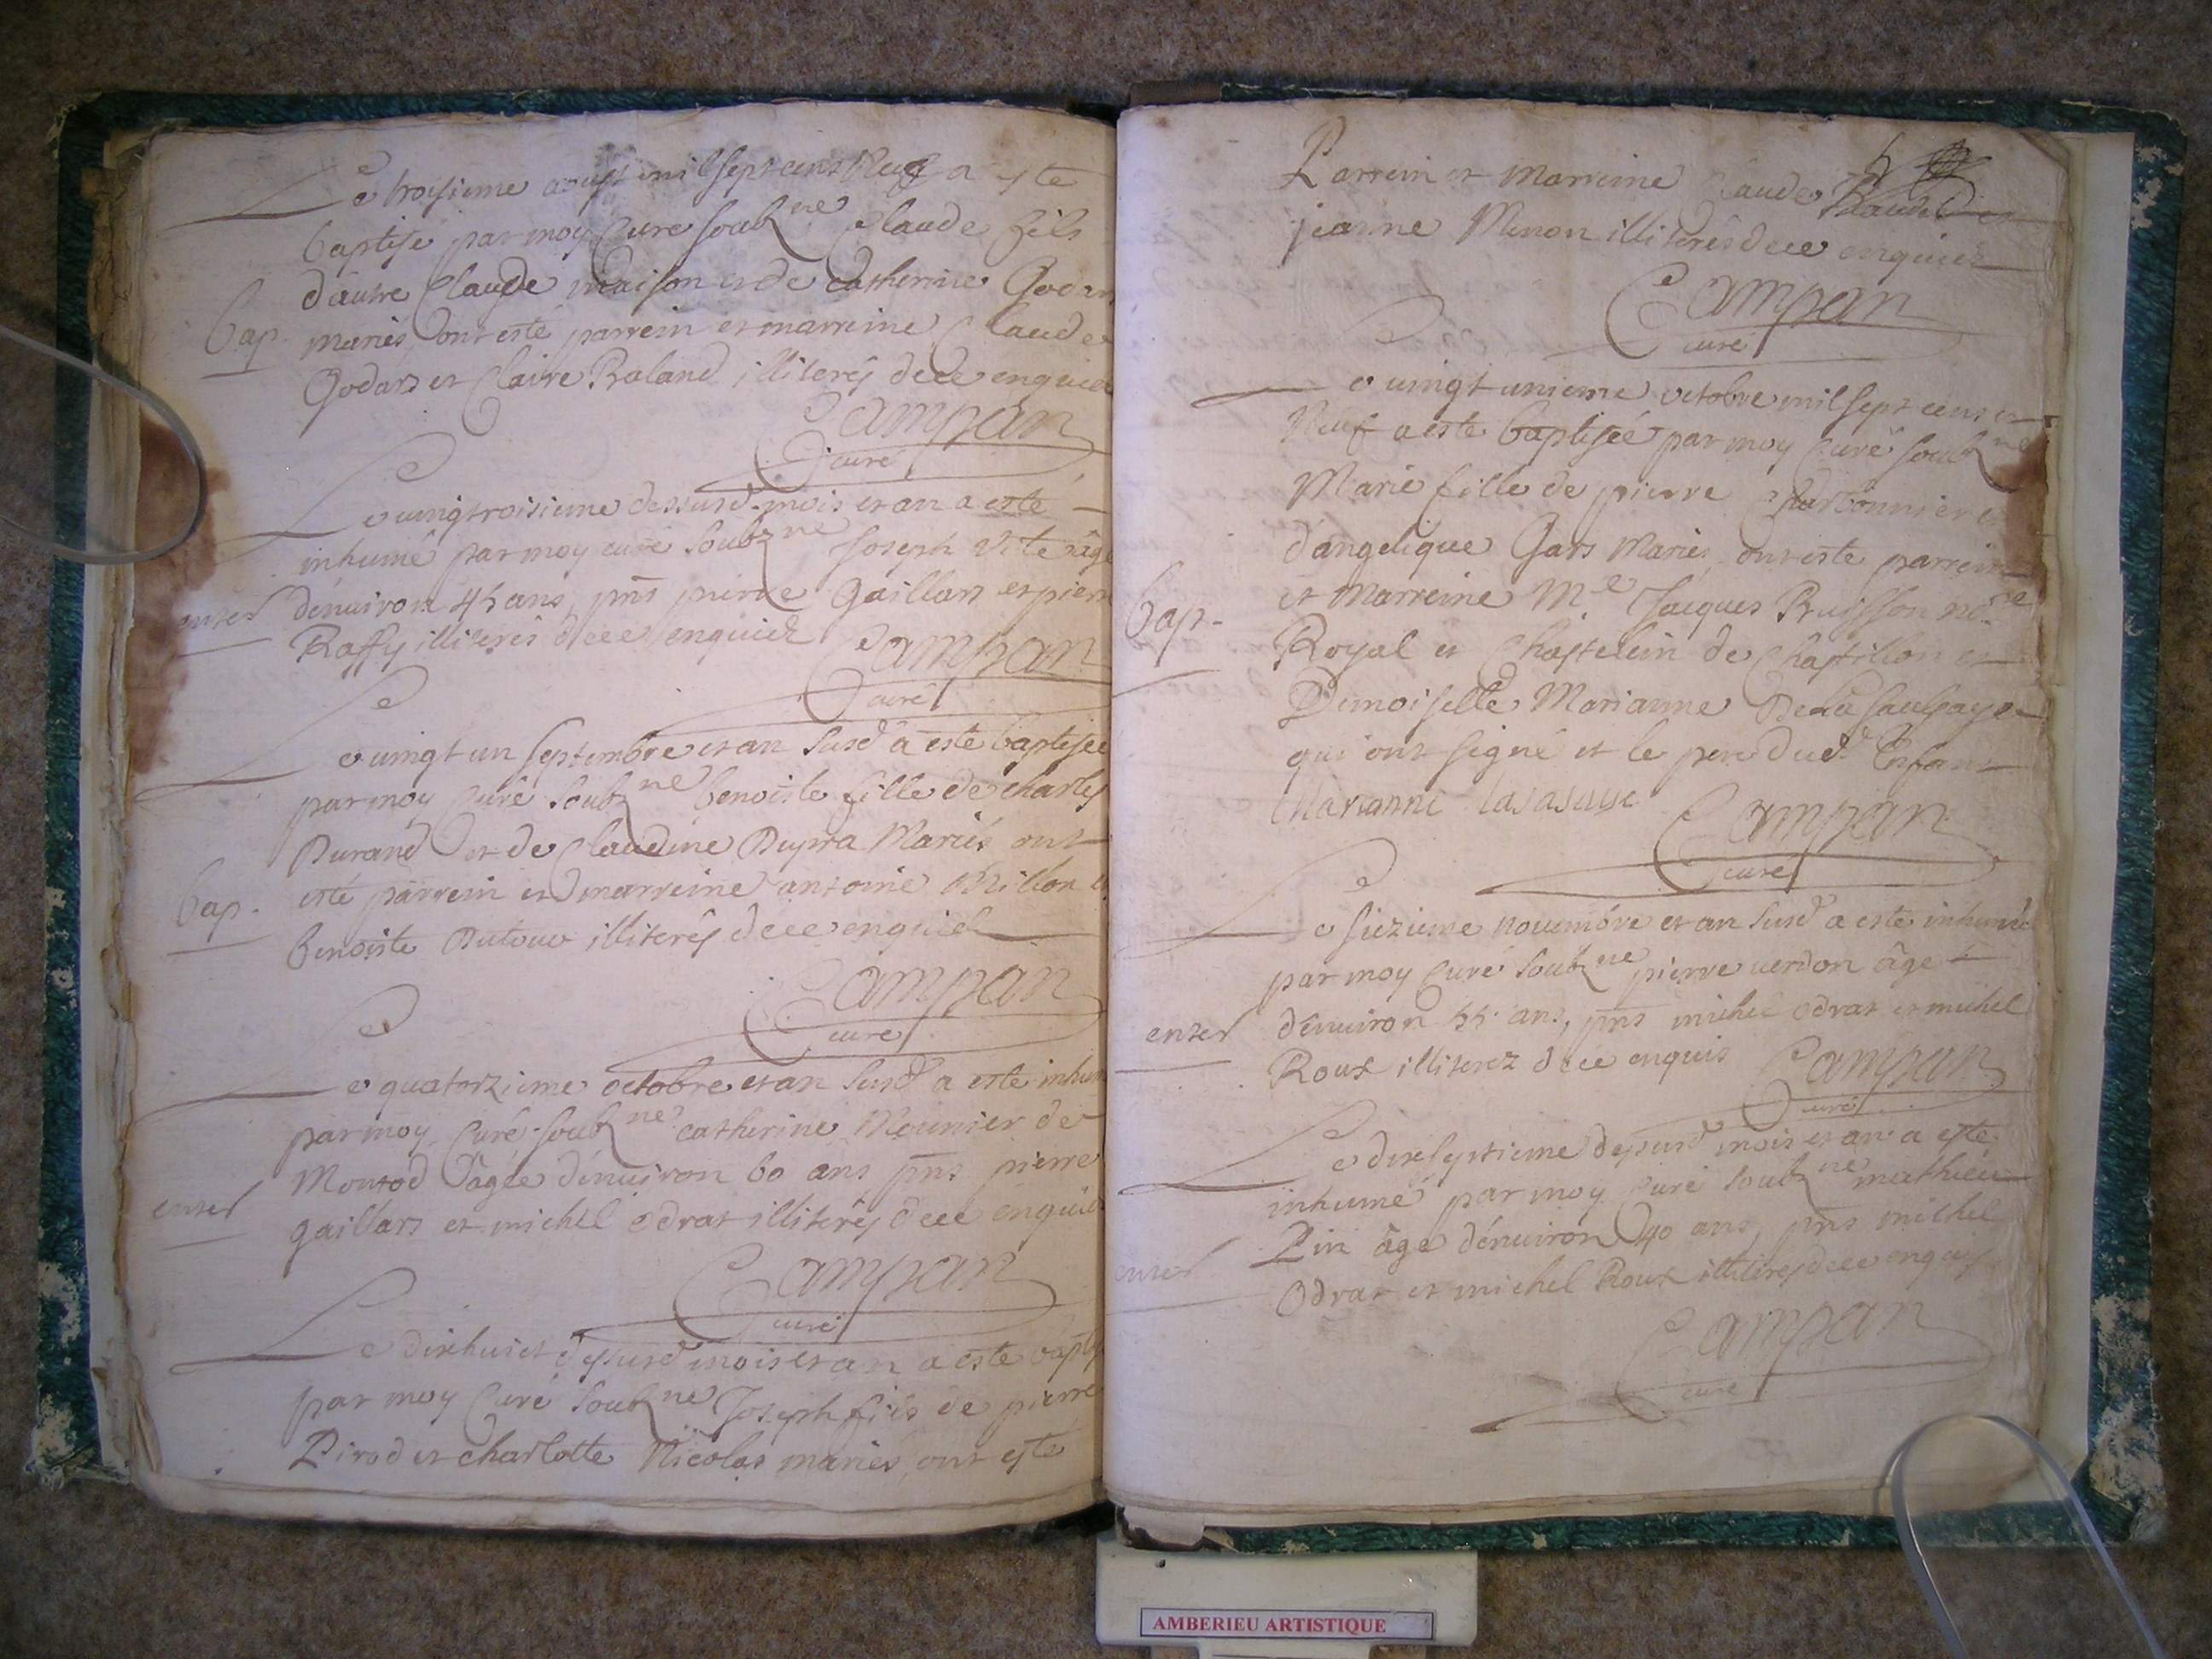 Le troisieme aoust mil sept cent neuf a este
baptisé par moy Curé soubz.ne Claude fils
d'autre Claude maison et de catherine Godar
bap. mariés, ont esté parrein et marreine Claude
Godard et Claire Baland illiterés de ce enquier
Campan
curé
Le uingtroisieme dessusd. mois et an a esté
inhumé par moy curé soubz.ne Joseph Vite âgé
enter d'enuiron 45 ans, pns pierre Gaillard et pierre
Raffy illiterés de ce enquier
Campan
curé
Le uingt un septembre et an susd a esté baptisée
par moy Curé soubz.ne benoiste fille de charles
Durand et de Claudine Dupra Mariés ont
bap. esté parrein et marreine antoine Millon et
benoiste Dutour illiterés de ce enquier
Campan
curé
Le quatorzieme octobre et an susd a este inhum
par moy Curé soubz.ne catherine Mounier de
Montod âgée d'enuiron 60 ans pns pierre
enter gaillard et michel odrat illiterés de ce enquier
Campan
curé
Le dixhuict dessusd mois et an a este bapt
par moy Curé soubz.ne Joseph fils de pierre
Pirod et charlotte Nicolas mariés, ont esté
Parrein et marreine Claude
jeanne Menon illiterés de ce enquier
Campan
curé
Le uingt unieme octobre mil sept cent et
Neuf a este baptisée par moy Curé soubz.ne
Marie fille de pierre Charbonnier et
d'angelique Gars Mariés, ont este parrein
bap. et Marreine M.e Jacques Buisson no.re
Royal et Chastelein de Chastillon et
Dimoiselle Marianne De La saulsaye
qui ont signé et le pere dud. Enfant
Marianne lasasaye
Campan
curé
Le siezieme nouembre et an susd a este inhumé
par moy Curé soubz.ne pierre uerdon âgé
enter d'enuiron 55 ans, pns michel odrat et michel
Roux illiterez de ce enquis
Campan
curé
Le dixseptieme dessusd mois et an a este
inhumé par moy Curé soubz.ne mathieu
Pin âgé d'enuiron 40 ans, pns michel
enter Odrat et michel Roux illiterés de ce enquis
Campan
curé
AMBERIEU ARTISTIQUE